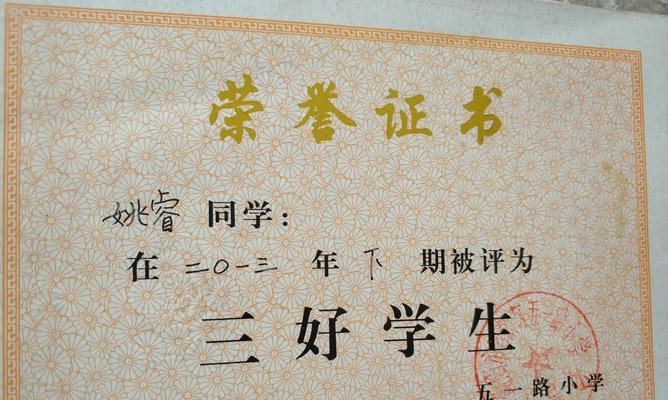 荣誉证书
姚睿 同学:
在 二〇一三 年 下 期被评为
三好学生
五一路小学